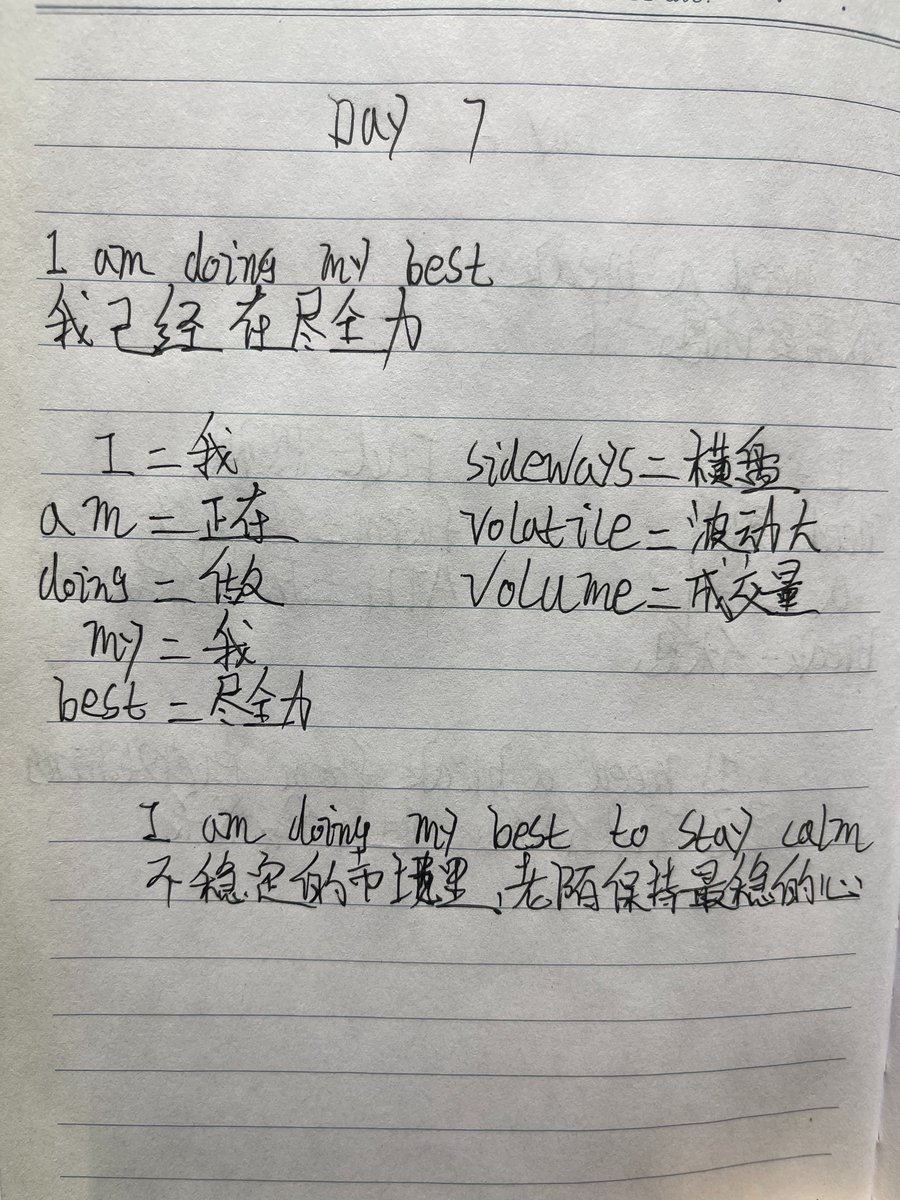 Day 7
I am doing my best
我已经在尽全力
I = 我
am = 正在
doing = 做
my = 我
best = 尽全力
sideways = 横盘
volatile = 波动大
Volume = 成交量
I am doing my best to stay calm
不稳定的市境里,老陌保持最稳的心